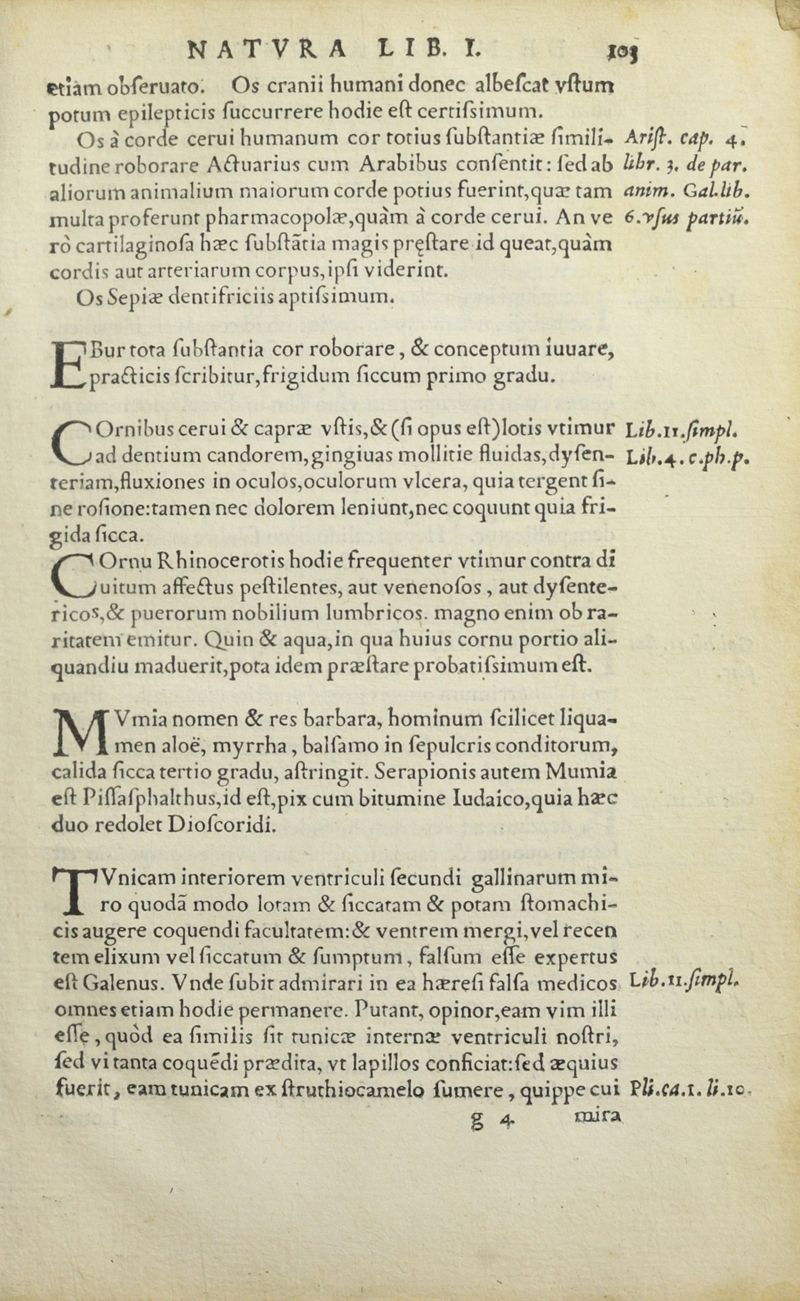 NATVRA LIB. I. 103
etiam obſeruato. Os cranii humani donec albeſcat vſtum
potum epilepticis ſuccurrere hodie eſt certiſsimum.
Os à corde cerui humanum cor totius ſubſtantiæ ſimili- Ariſt. cap. 4.
tudine roborare Actuarius cum Arabibus conſentit: ſed ab libr. 3. de par.
aliorum animalium maiorum corde potius fuerint, quæ tam anim. Gal. lib.
multa proferunt pharmacopolæ, quàm à corde cerui. An ve 6. vſus partiū.
rò cartilaginoſa hæc ſubſtātia magis pręſtare id queat, quàm
cordis aut arteriarum corpus, ipſi viderint.
Os Sepiæ dentifriciis aptiſsimum.
EBur tota ſubſtantia cor roborare, & conceptum iuuare,
practicis ſcribitur, frigidum ſiccum primo gradu.
COrnibus cerui & capræ vſtis, & (ſi opus eſt) lotis vtimur Lib. 11. ſimpl.
ad dentium candorem, gingiuas mollitie fluidas, dyſen- Lib. 4. c. ph. p.
teriam, fluxiones in oculos, oculorum vlcera, quia tergent ſi-
ne roſione: tamen nec dolorem leniunt, nec coquunt quia fri-
gida ſicca.
COrnu Rhinocerotis hodie frequenter vtimur contra di
uitum affectus peſtilentes, aut venenoſos, aut dyſente-
ricos, & puerorum nobilium lumbricos. magno enim ob ra-
ritatem emitur. Quin & aqua, in qua huius cornu portio ali-
quandiu maduerit, pota idem præſtare probatiſsimum eſt.
MVmia nomen & res barbara, hominum ſcilicet liqua-
men aloë, myrrha, balſamo in ſepulcris conditorum,
calida ſicca tertio gradu, aſtringit. Serapionis autem Mumia
eſt Piſſaſphalthus, id eſt, pix cum bitumine Iudaico, quia hæc
duo redolet Dioſcoridi.
TVnicam interiorem ventriculi ſecundi gallinarum mi-
ro quodā modo lotam & ſiccatam & potam ſtomachi-
cis augere coquendi facultatem: & ventrem mergi, vel recen
tem elixum vel ſiccatum & ſumptum, falſum eſſe expertus
eſt Galenus. Vnde ſubit admirari in ea hæreſi falſa medicos Lib. 11. ſimpl.
omnes etiam hodie permanere. Putant, opinor, eam vim illi
eſſe, quòd ea ſimilis ſit tunicæ internæ ventriculi noſtri,
ſed vi tanta coquēdi prædita, vt lapillos conficiat: ſed æquius
fuerit, eam tunicam ex ſtruthiocamelo ſumere, quippe cui Pli. ca. 1. li. 10.
g 4 mira